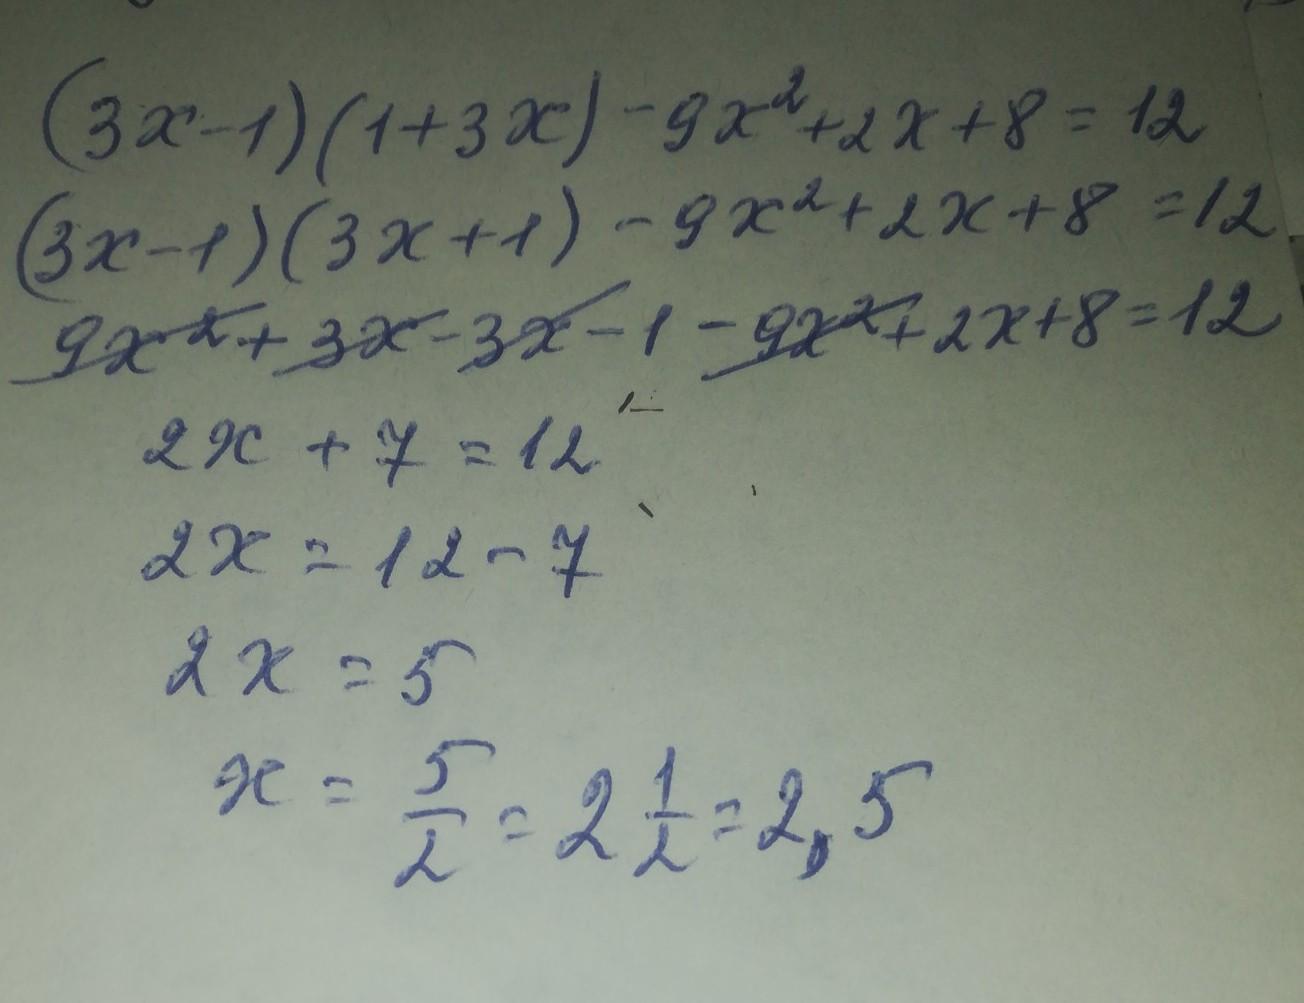 (3x-1)(1+3x)-9x²+2x+8=12
(3x-1)(3x+1)-9x²+2x+8=12
9x²+3x-3x-1-9x²+2x+8=12
2x+7=12
2x=12-7
2x=5
x=5/2=2 1/2=2,5